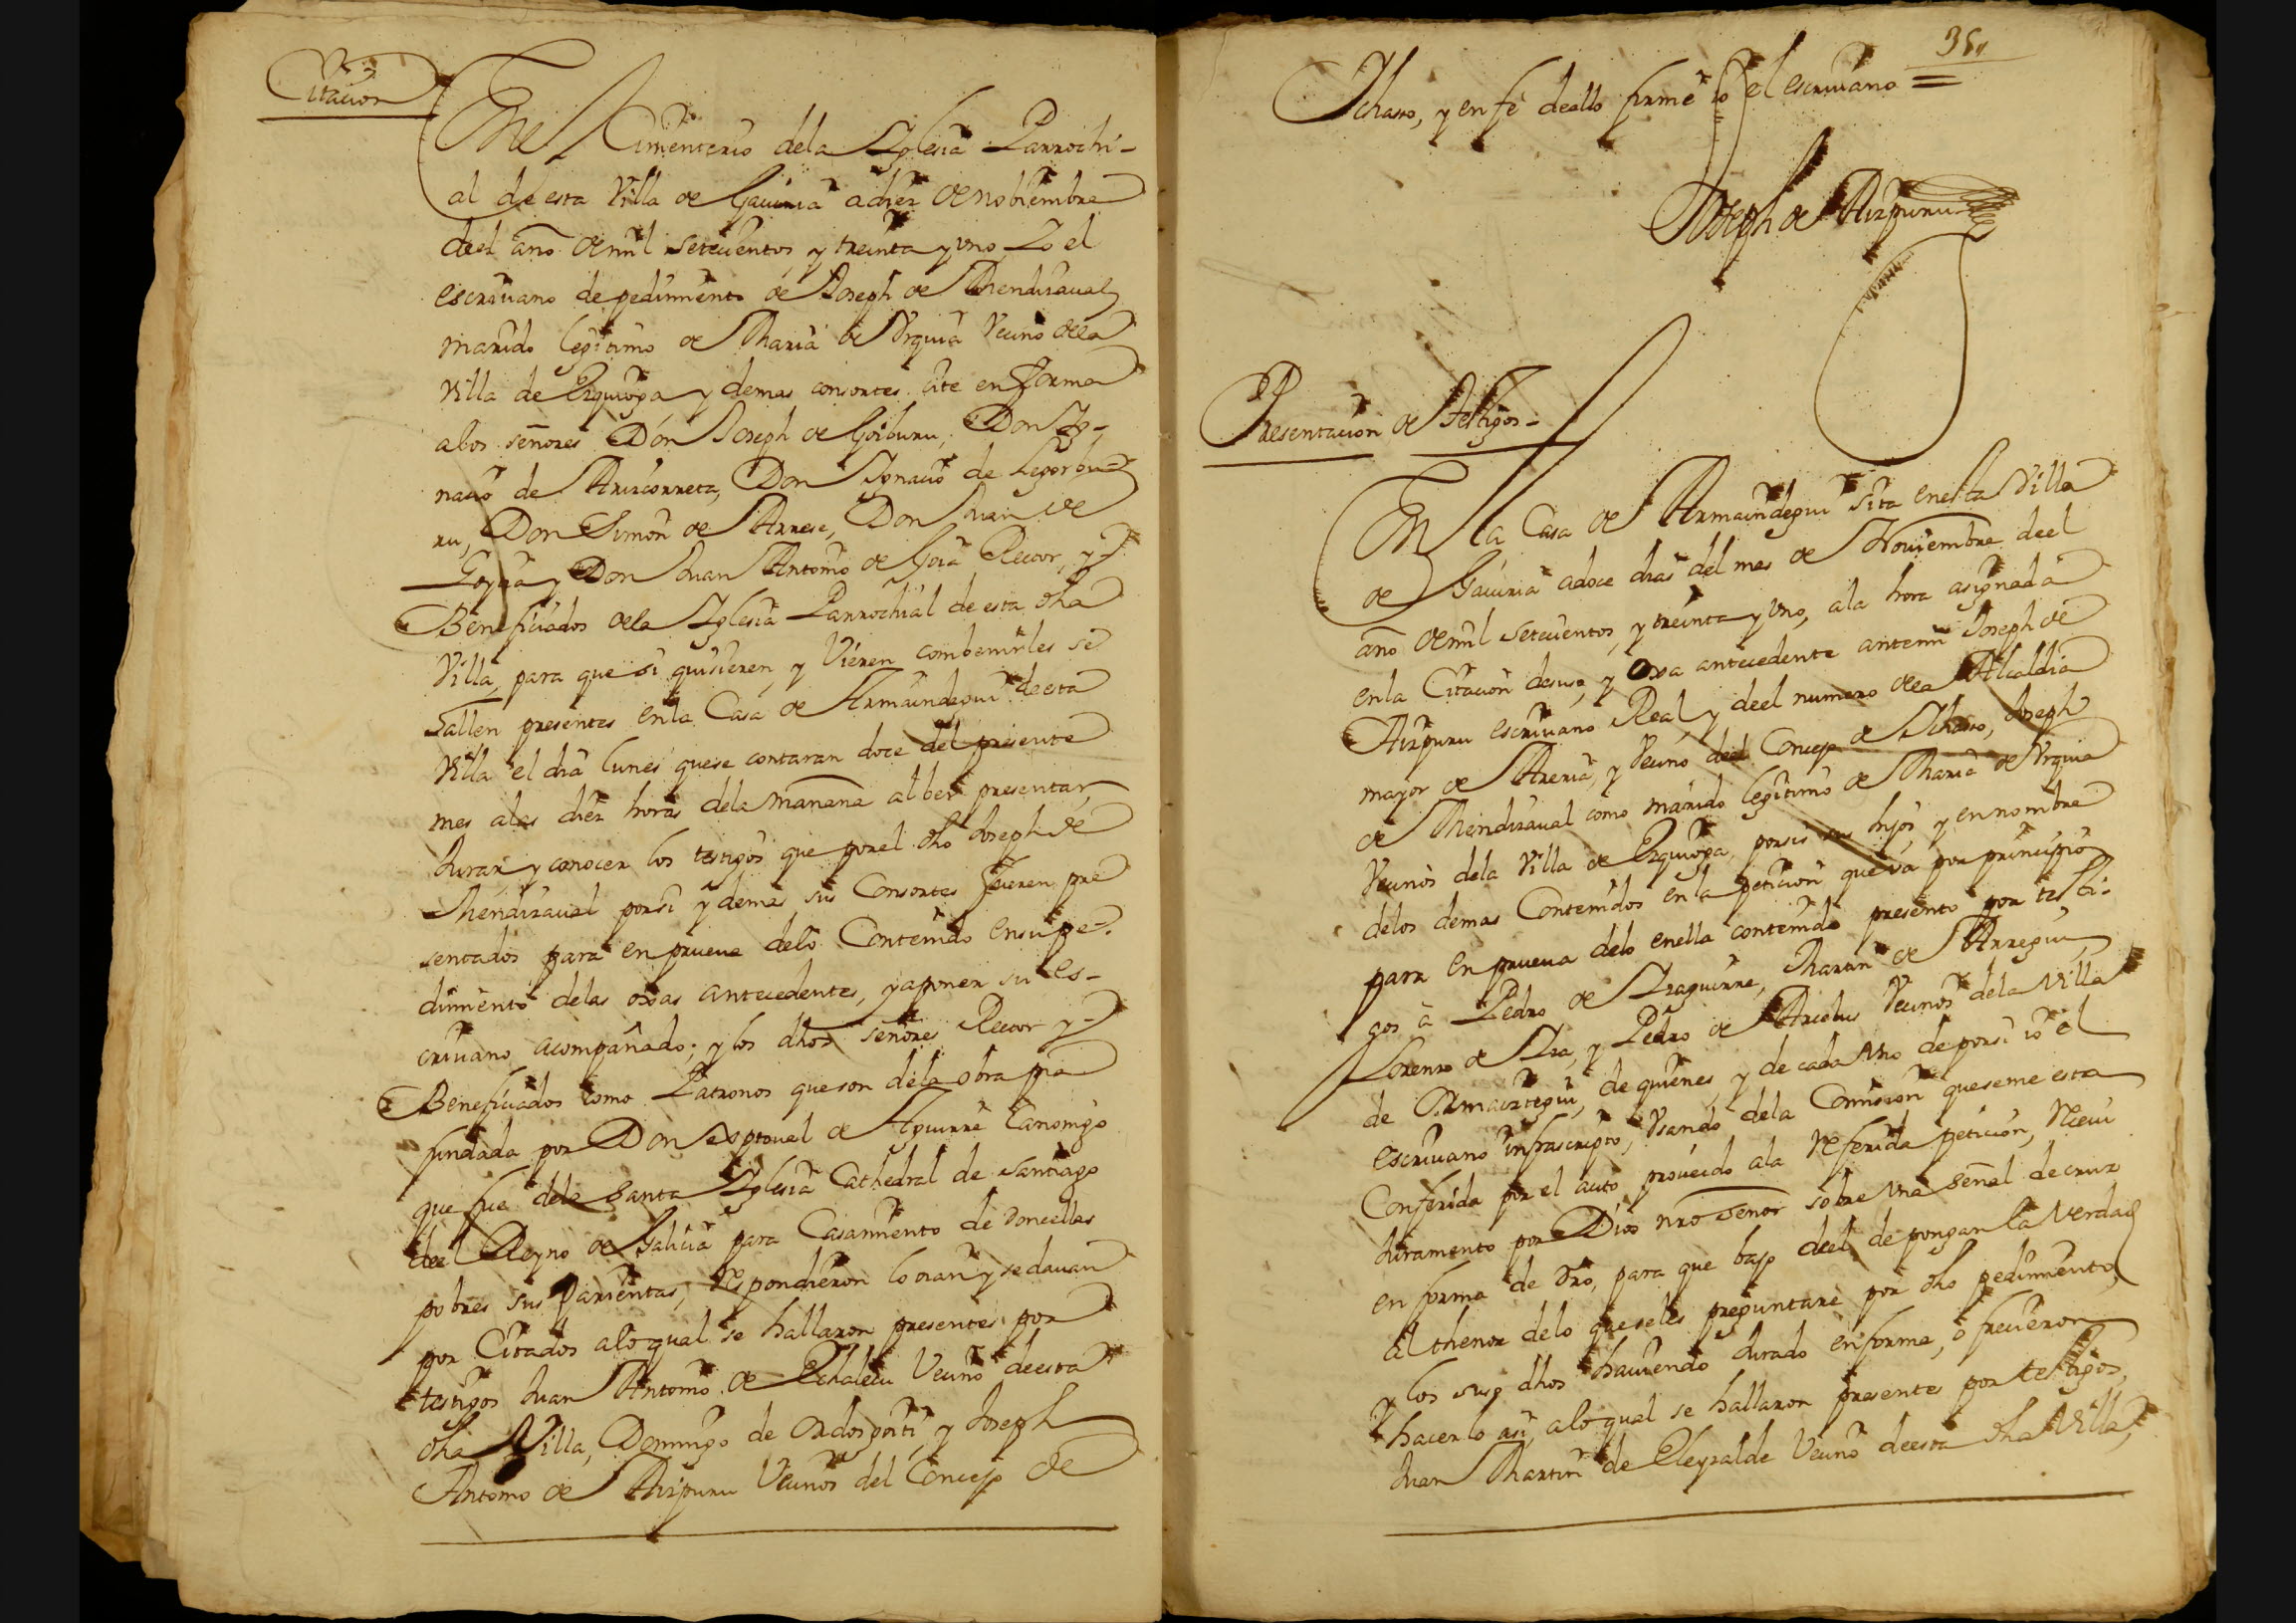 Citacion
En el Cimenterio dela Iglesia Parrochi-
al de esta Villa de Gaviria a diez de nobiembre
deel año de mil setecientos y treinta y uno Yo el
escrivano de pedimiento de Joseph de Mendizaval
marido legitimo de Maria de Urquia Vecino dela
Villa de Ezquioga y demas consortes cite en forma
alos señores Don Joseph de Goiburu, Don Ig-
nacio de Arizcorreta, Don Ignacio de Legorbu-
ru, Don Simon de Arrese, Don Juan de
Goya y Don Juan Antonio de Goia Retor, y
Beneficiados dela Iglesia Parrochial de esta dha
Villa, para que si quisieren, y Vieren combenirles se
hallen presentes en la Casa de Armaindegui de esta
Villa el dia lunes que se contaran doce del presente
mes alas diez horas dela mañana al ber presentar,
Jurar, y conocer los testigos que por el dho Joseph de
Mendizaval por si y demas sus Consortes fueren pre
sentados para en prueva delo Contenido en su pe-
dimiento delas oxas antecedentes, y a poner su es-
crivano acompañado; y los dhos señores Retor y
Beneficiados como Patronos que son dela obra pia
fundada por Don Xptoval de Aguirre Canonigo
que fue dela Santa Iglesia Cathedral de Santiago
deel Reyno de Galicia para Casamiento de doncellas
pobres sus Parientas, Respondieron lo oian y se davan
por Citados alo qual se hallaron presentes por
testigos Juan Antonio de Echalecu Vecino de esta
dha Villa, Domingo de Ordozgoiti, y Joseph
Antonio de Aizpuru Vecinos del Concejo de
35
Ichaso, y en fe de ello firme yo el escrivano =
Joseph de Aizpuru
Presentacion de testigos -
En la Casa de Armaindegui sita en esta Villa
de Gaviria a doce dias del mes de Noviembre deel
año de mil setecientos, y treinta y uno, ala hora asignada
en la Citacion desuso, y Oxa antecedente ante mi Joseph de
Aizpuru escrivano Real, y deel numero dela Alcaldia
mayor de Areria, y Vecino deel Concejo de Ichaso, Joseph
de Mendizaval como marido legitimo de Maria de Urquia
Vecinos dela Villa de Ezquioga, por si sus hijos y en nombre
delos demas Contenidos en la peticion que va por principio
para en prueva delo en ella contenido presento por testi-
gos à Pedro de Izaguirre, Martin de Arregui,
Lorenzo de Iza, y Pedro de Arcelus Vecinos dela Villa
de Ormaiztegui, de quienes, y de cada uno de por si io el
escrivano infrascripto, Usando dela Comision que se me esta
Conferida por el auto proveido ala Referida peticion, Recivi
Juramento por Dios nro señor sobre una señal de cruz
en forma de dro, para que bajo deel depongan la verdad
al thenor delo que se les preguntare por dho pedimiento,
y los suso dhos haviendo Jurado en forma, ofrecieron
hacerlo asi, alo qual se hallaron presentes por testigos,
Juan Martin de Eleyzalde Vecino de esta dha Villa,